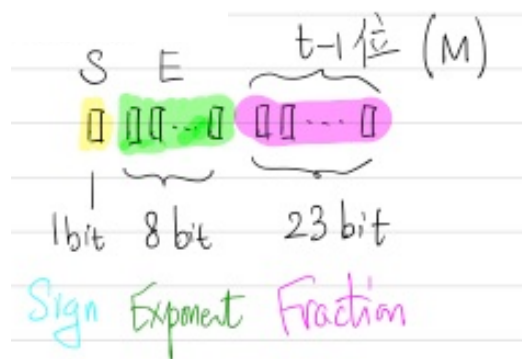 t-1位 (M)
S E
1bit 8 bit 23 bit
Sign Exponent Fraction